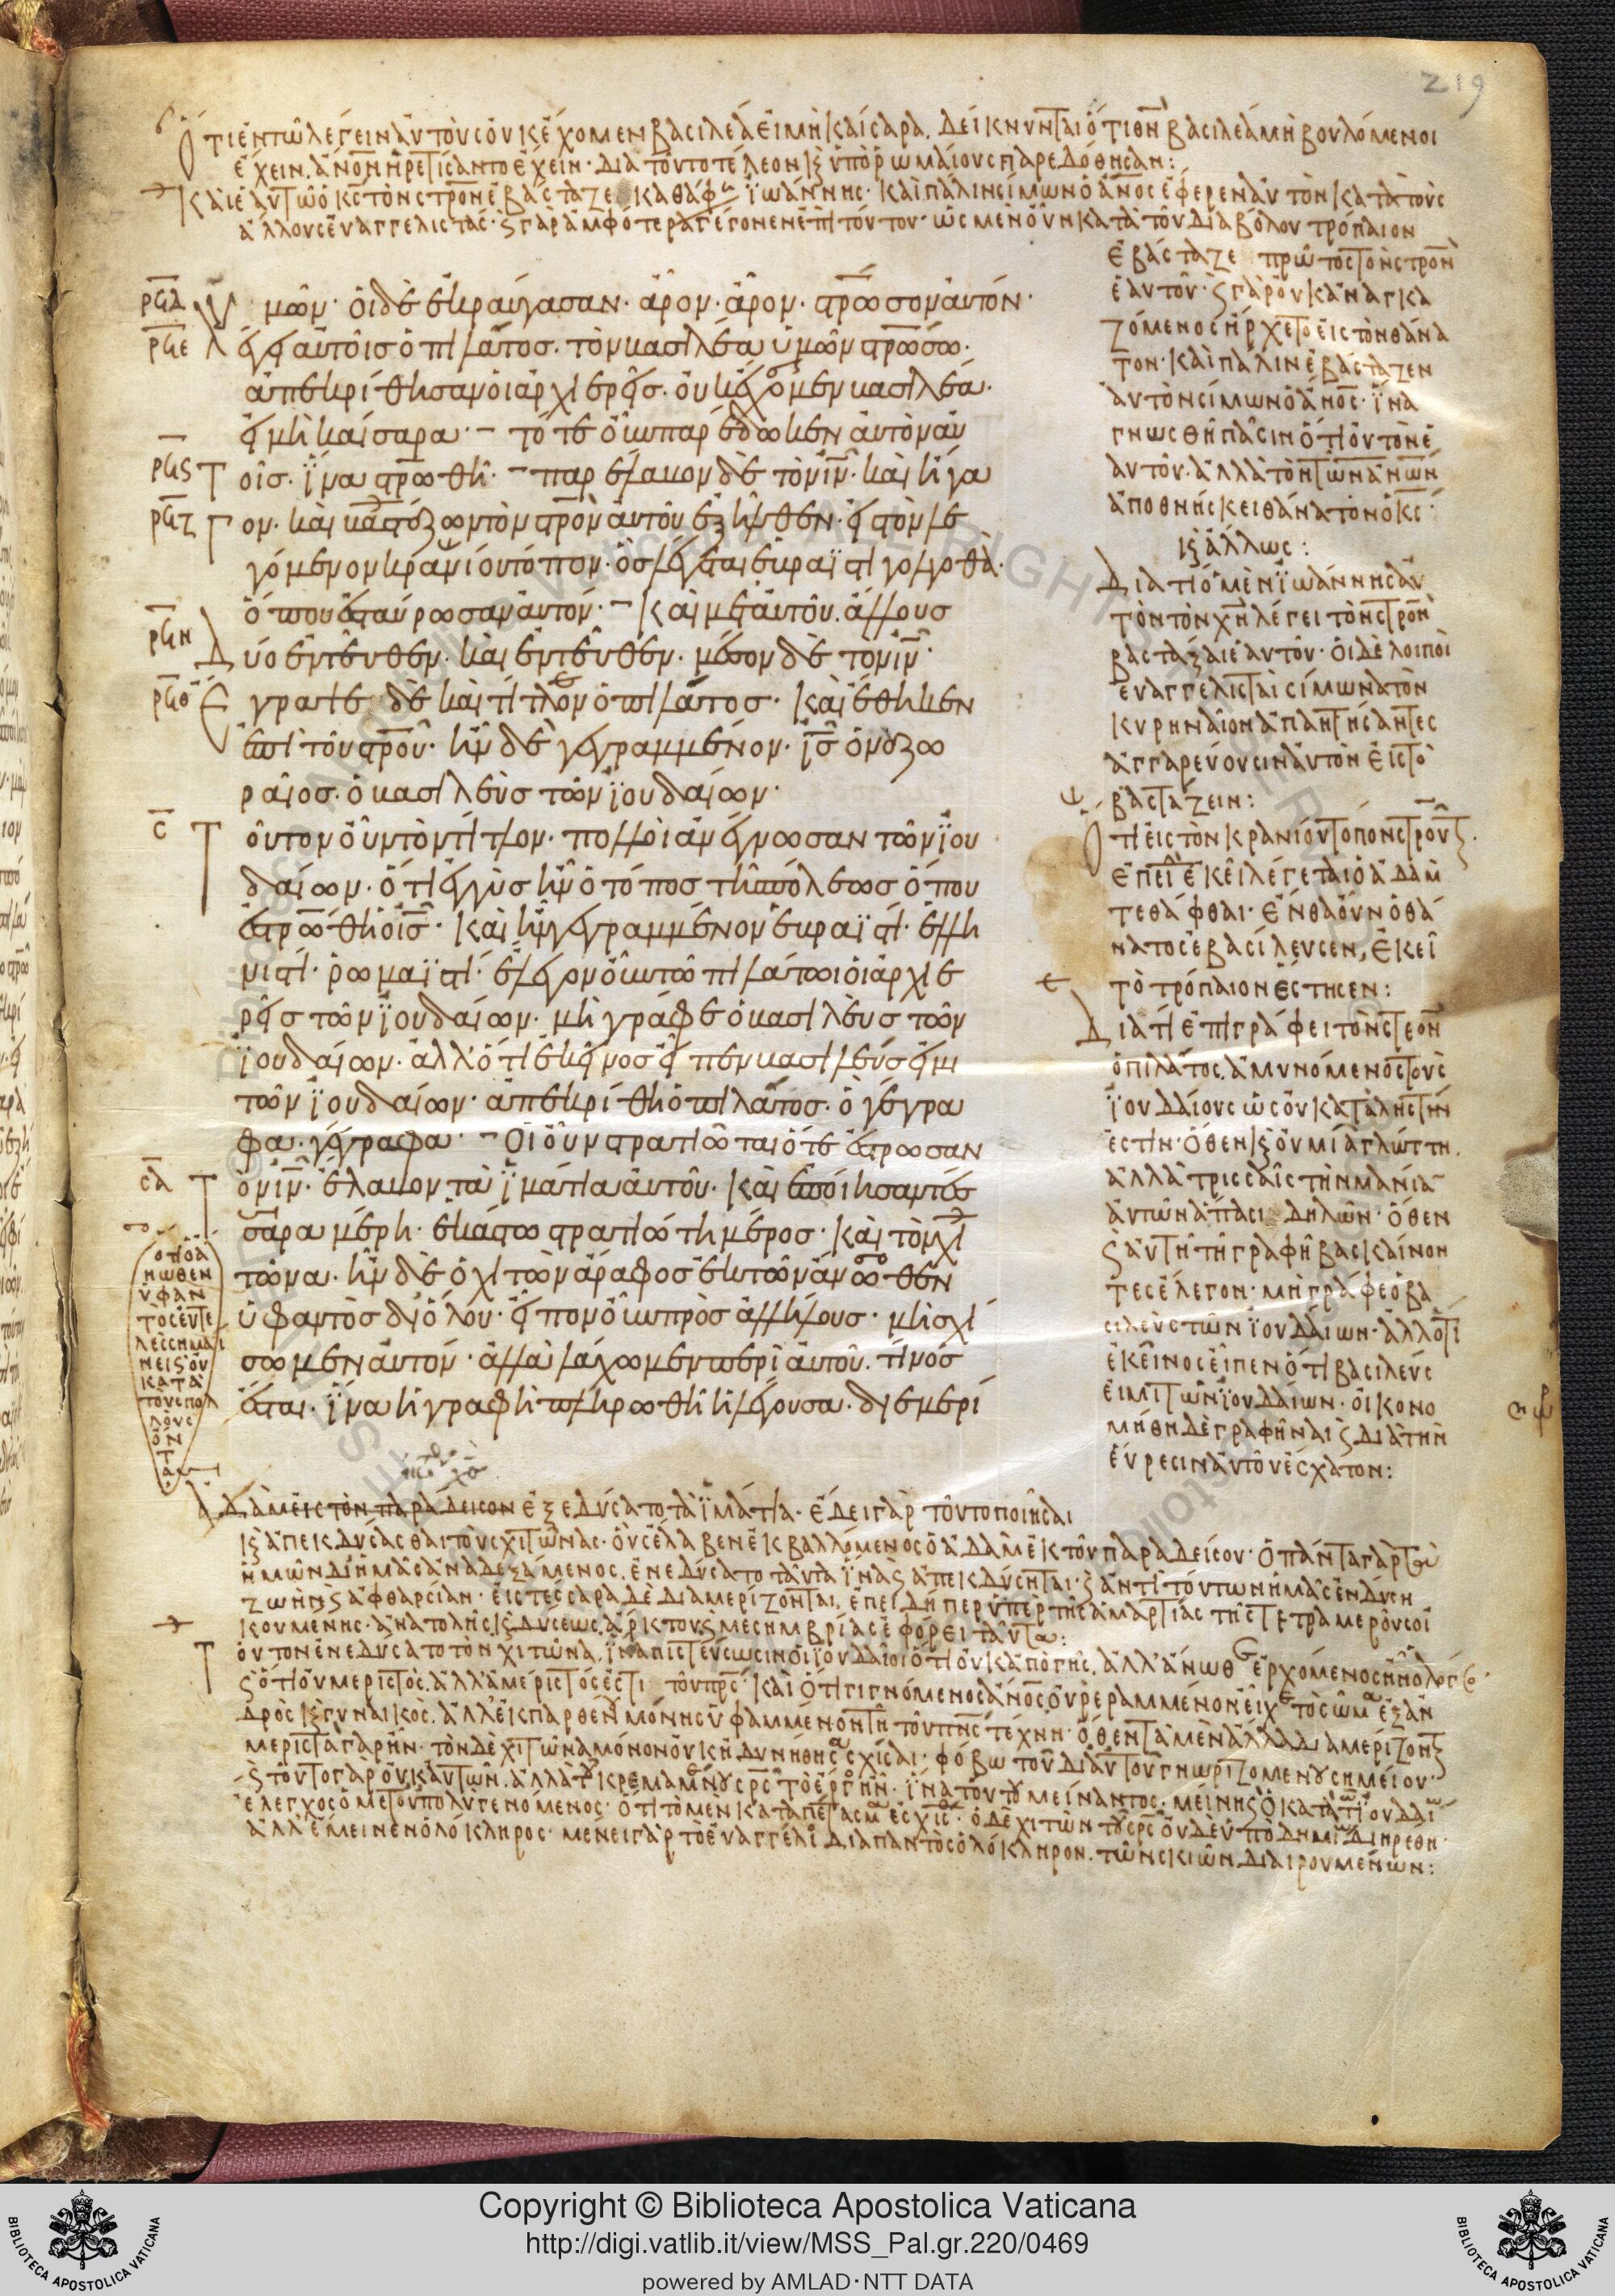 219
Ὅτι ἐν τῶ λέγειν αὐτοὺς οὐκ ἔχομεν βασιλέα εἰ μὴ καίσαρα. δείκνυνται ὅτι θ̅ν̅ βασιλέα μὴ βουλόμενοι
ἔχειν. ἄνο̅ν̅ ἡρετίσαντο ἔχειν· διὰ τοῦτο τέλεον κ̀ ὑπὸ ῥωμαίους παρεδόθησαν:
Καὶ ἑαυτῶ ὁ κ̅ς̅ τὸν στρο̅ν̅ ἐβάσταζε καθά φη ἰωάννης· καὶ πάλιν σίμων ὁ ἄνος ἔφερεν αὐτὸν κατὰ τοὺς
ἄλλους εὐαγγελιστάς· κ̀ γὰρ ἀμφότερα γέγονεν ἐπὶ τούτου· ὡς μὲν οὖν κατὰ τοῦ διαβόλου τρόπαιον
ἐβάσταζε πρῶτος τὸν στρο̅ν̅
ἑαυτοῦ· κ̀ γὰρ οὐκ ἀναγκα
ζόμενος ἤρχετο εἰς τὸν θάνα
τον· καὶ πάλιν ἐβάσταζεν
αὐτὸν σίμων ὁ ἄνος· ἵνα
γνωσθῆ πᾶσιν ὅτι οὐ τὸν ἑ
αυτοῦ· ἀλλὰ τὸν τῶν ἀνων
ἀποθνήσκει θάνατον ὁ κ̅ς̅·
κ̀ ἄλλως:
Διατί ὁ μὲν ἰωάννης αὐ
τὸν τὸν χ̅ν̅ λέγει τὸν στρο̅ν̅
βαστάξαι ἑαυτοῦ· οἱ δὲ λοιποὶ
εὐαγγελισταὶ σίμωνα τὸν
κυρηναῖον ἀπαντήσαντες
ἀγγαρεύουσιν αὐτὸν εἰς τὸ
βαστάζειν:
Ὅτι εἰς τὸν κρανίου τόπον στροῦται·
ἐπεὶ ἐκεῖ λέγεται ὁ ἀδὰμ
τεθάφθαι· ἔνθα οὖν ὁ θά
νατος ἐβασίλευσεν, ἐκεῖ
τὸ τρόπαιον ἔστησεν:
Διατί ἐπιγράφει τὸν στρο̅ν̅
ὁ πιλάτος. ἀμυνόμενος τοὺς
ἰουδαίους ὡς οὐ κατὰ ληστήν
ἐστιν· ὅθεν κ̀ οὐ μιᾶ γλώττη.
ἀλλὰ τρισσαῖς τὴν μανίαν
αὐτῶν ἅπασι δηλῶν· ὅθεν
κ̀ αὐτῆ τῆ γραφῆ βασκαίνον
τες ἔλεγον· μὴ γράφε ὁ βα
σιλεὺς τῶν ἰουδαίων· ἀλλ' ὅτι
ἐκεῖνος εἶπεν ὅτι βασιλεύς
εἰμι τῶν ἰουδαίων· οἰκονο
μήθη δὲ γραφῆναι κ̀ διὰ τὴν
εὕρεσιν αὐτοῦ ἐσχάτον:
ρϟδ ὑμῶν· οἱ δὲ ἐκραύγασαν· ἆρον· ἆρον· στρωσον αὐτόν·
ρϟε λέγει αὐτοῖς ὁ πιλάτος· τὸν βασιλέα ὑμῶν στρώσω·
ἀπεκρίθησαν οἱ ἀρχιερεῖς· οὐκ ἔχομεν βασιλέα·
εἰ μὴ καίσαρα· – τότε οὖν παρέδωκεν αὐτὸν αὐ
ρϟς τοῖς· ἵνα στρωθῆ· – παρέλαβον δὲ τὸν ι̅ν̅· καὶ ἤγα
ρϟζ γον· καὶ βαστάζων τὸν στρον αὐτοῦ ἐξῆλθεν· εἰς τὸν λε
γόμενον κρανίου τόπον· ὃς λέγεται ἑβραϊστὶ γολγοθᾶ·
ὅπου ἐσταύρωσαν αὐτόν· – καὶ μετ' αὐτοῦ. ἄλλους
ρϟη δύο ἐντεῦθεν· καὶ ἐντεῦθεν· μέσον δὲ τὸν ι̅ν̅·
ρϟθ ἔγραψε δὲ καὶ τίτλον ὁ πιλάτος· καὶ ἔθηκεν
ἐπὶ τοῦ στροῦ· ἦν δὲ γεγραμμένον· ι̅ς̅ ὁ ναζω
ραῖος· ὁ βασιλεὺς τῶν ἰουδαίων·
ς̅ τοῦτον οὖν τὸν τίτλον· πολλοὶ ἀνέγνωσαν τῶν ἰου
δαίων· ὅτι ἐγγὺς ἦν ὁ τόπος τῆς πόλεως ὅπου
ἐστρώθη ὁ ι̅ς̅· καὶ ἦν γεγραμμένον ἑβραϊστὶ· ἑλλη
νιστὶ· ῥωμαϊστὶ· ἔλεγον οὖν τῶ πιλάτωι οἱ ἀρχιε
ρεῖς τῶν ἰουδαίων· μὴ γράφε ὁ βασιλεὺς τῶν
ἰουδαίων· ἀλλ' ὅτι ἐκεῖνος εἶπεν βασιλεύς εἰμι
τῶν ἰουδαίων· ἀπεκρίθη ὁ πιλάτος· ὃ γέγρα
φα· γέγραφα· – Οἱ οὖν στρατιῶται ὅτε ἐστρωσαν
σ̅α̅ τὸν ι̅ν̅· ἔλαβον τὰ ἱμάτια αὐτοῦ· καὶ ἐποίησαν τέσ
σαρα μέρη· ἑκάστω στρατιώτη μέρος· καὶ τὸν χι
τῶνα· ἦν δὲ ὁ χιτὼν ἄραφος ἐκ τῶν ἄνωθεν
ὑφαντὸς δι' ὅλου· εἶπον οὖν πρὸς ἀλλήλους· μὴ σχί
σωμεν αὐτόν· ἀλλὰ λάχωμεν περὶ αὐτοῦ. τίνος
ἔσται· ἵνα ἡ γραφὴ πληρωθῆ ἡ λέγουσα· διεμερί
ὅτι ὁ ἄ
νωθεν
ὑφαν
τὸς ἐντε
λεῖς σημαί
νει κ̀ οὐ
κατὰ
τοὺς πολ
λοὺς
ὄν
τα
Ἀδὰμ εἰς τὸν παράδεισον ἐξεδύσατο τὰ ἱμάτια· ἔδει γὰρ τοῦτο ποιῆσαι
κ̀ ἀπεκδύσασθαι τοὺς χιτῶνας· οὓς ἔλαβεν ἐκβαλλόμενος ὁ ἀδὰμ ἐκ τοῦ παραδείσου· ὁ πάντα γὰρ τὰ
ἡμῶν δι' ἡμᾶς ἀναδεξάμενος, ἐνεδύσατο ταῦτα ἵνα κ̀ ἀπεκδύσηται· κ̀ ἀντὶ τούτων ἡμᾶς ἐνδύση
ζωὴν κ̀ ἀφθαρσίαν· εἰς τέσσαρα δὲ διαμερίζονται, ἐπειδήπερ ὑπὲρ τῆς ἁμαρτίας τῆς τετραμεροῦς οἰ
κουμένης· ἀνατολῆς κ̀ δύσεως ἄρκτου κ̀ μεσημβρίας ἐφόρει ταῦτα:
Τοῦτον ἐνεδύσατο τὸν χιτῶνα, ἵνα πιστεύσωσιν οἱ ἰουδαῖοι ὅτι οὐκ ἀπὸ γῆς, ἀλλ' ἄνωθεν ἐρχόμενος
κ̀ ὅτι οὐ μεριστὸς. ἀλλ' ἀμέριστός ἐστι τοῦ π̅ρ̅ς̅· καὶ ὅτι γιγνόμενος ἄνος οὐ ῥεραμμένον εἶχε τὸ σῶμα ἐξ ἀν
δρὸς κ̀ γυναικὸς. ἀλλ' ἐκ παρθένου μόνης ὑφαμμένον τῆ τοῦ π̅ν̅ς̅ τέχνη· ὅθεν τὰ μὲν ἄλλα διαμερίζονται
μεριστὰ γὰρ ἦν· τὸν δὲ χιτῶνα μόνον οὐκ ἠδυνήθησαν σχίσαι· φόβω τοῦ δι' αὐτοῦ γνωριζομένου σημείου·
ἔλεγχος ὁ μετὰ τοῦ πολυγενόμενος· ὅτι τὸ μὲν καταπέτασμα ἐσχίσθη· ὁ δὲ χιτὼν
ἀλλ' ἔμεινεν ὁλόκληρος· μένει γὰρ τὸ εὐαγγέλιον διαπαντὸς ὁλόκληρον. τῶν σκιῶν διαιρουμένων:
Copyright © Biblioteca Apostolica Vaticana
http://digi.vatlib.it/view/MSS_Pal.gr.220/0469
powered by AMLAD·NTT DATA
BIBLIOTECA APOSTOLICA VATICANA
BIBLIOTECA APOSTOLICA VATICANA